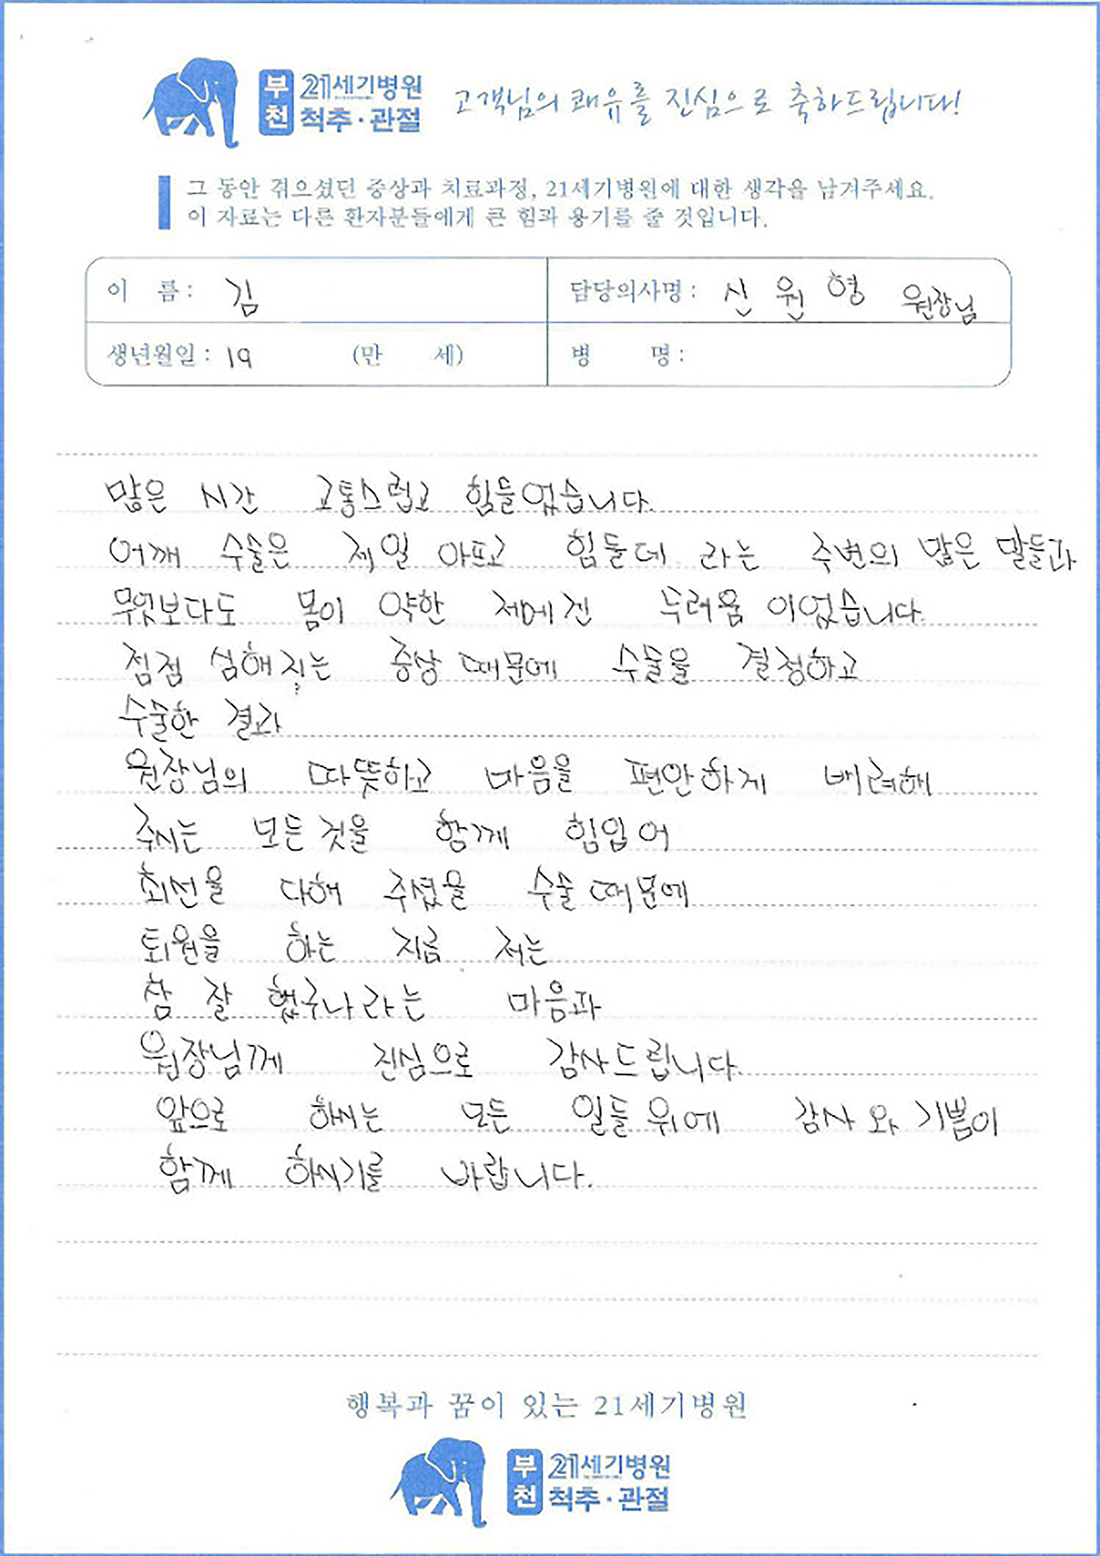 부천 21세기병원 척추·관절 고객님의 쾌유를 진심으로 축하드립니다!
그 동안 겪으셨던 증상과 치료과정, 21세기병원에 대한 생각을 남겨주세요.
이 자료는 다른 환자분들에게 큰 힘과 용기를 줄 것입니다.
이 름 : 김 담당의사명 : 신원형 원장님
생년월일 : 19 (만 세) 병 명 :
많은 시간 고통스럽고 힘들었습니다.
어깨 수술은 제일 아프고 힘들데 라는 주변의 많은 말들과
무엇보다도 몸이 약한 제에겐 두려움 이었습니다.
점점 심해지는 증상 때문에 수술을 결정하고
수술한 결과
원장님의 따뜻하고 마음을 편안하게 배려해
주시는 모든 것을 함께 힘입어
최선을 다해 주셨을 수술 때문에
퇴원을 하는 지금 저는
참 잘 했구나 라는 마음과
원장님께 진심으로 감사드립니다.
앞으로 하시는 모든 일들 위에 감사와 기쁨이
함께 하시기를 바랍니다.
행복과 꿈이 있는 21세기병원
부천 21세기병원 척추·관절